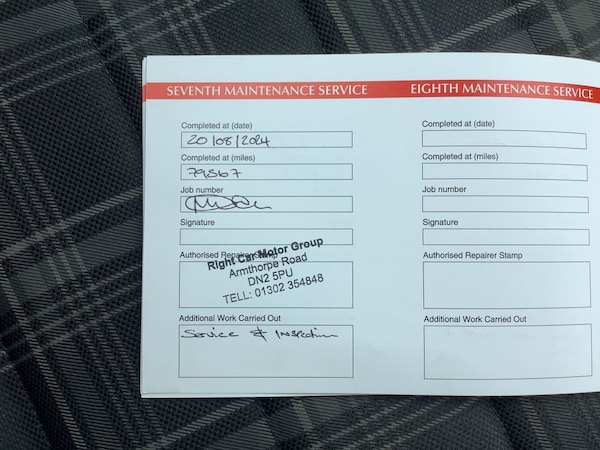 SEVENTH MAINTENANCE SERVICE
Completed at (date)
20/08/2024
Completed at (miles)
79,567
Job number
Signature
Authorised Repairer Stamp
Right Car Motor Group
Armthorpe Road
DN2 5PU
TELL: 01302 354848
Additional Work Carried Out
Service & Inspection
EIGHTH MAINTENANCE SERVICE
Completed at (date)
Completed at (miles)
Job number
Signature
Authorised Repairer Stamp
Additional Work Carried Out